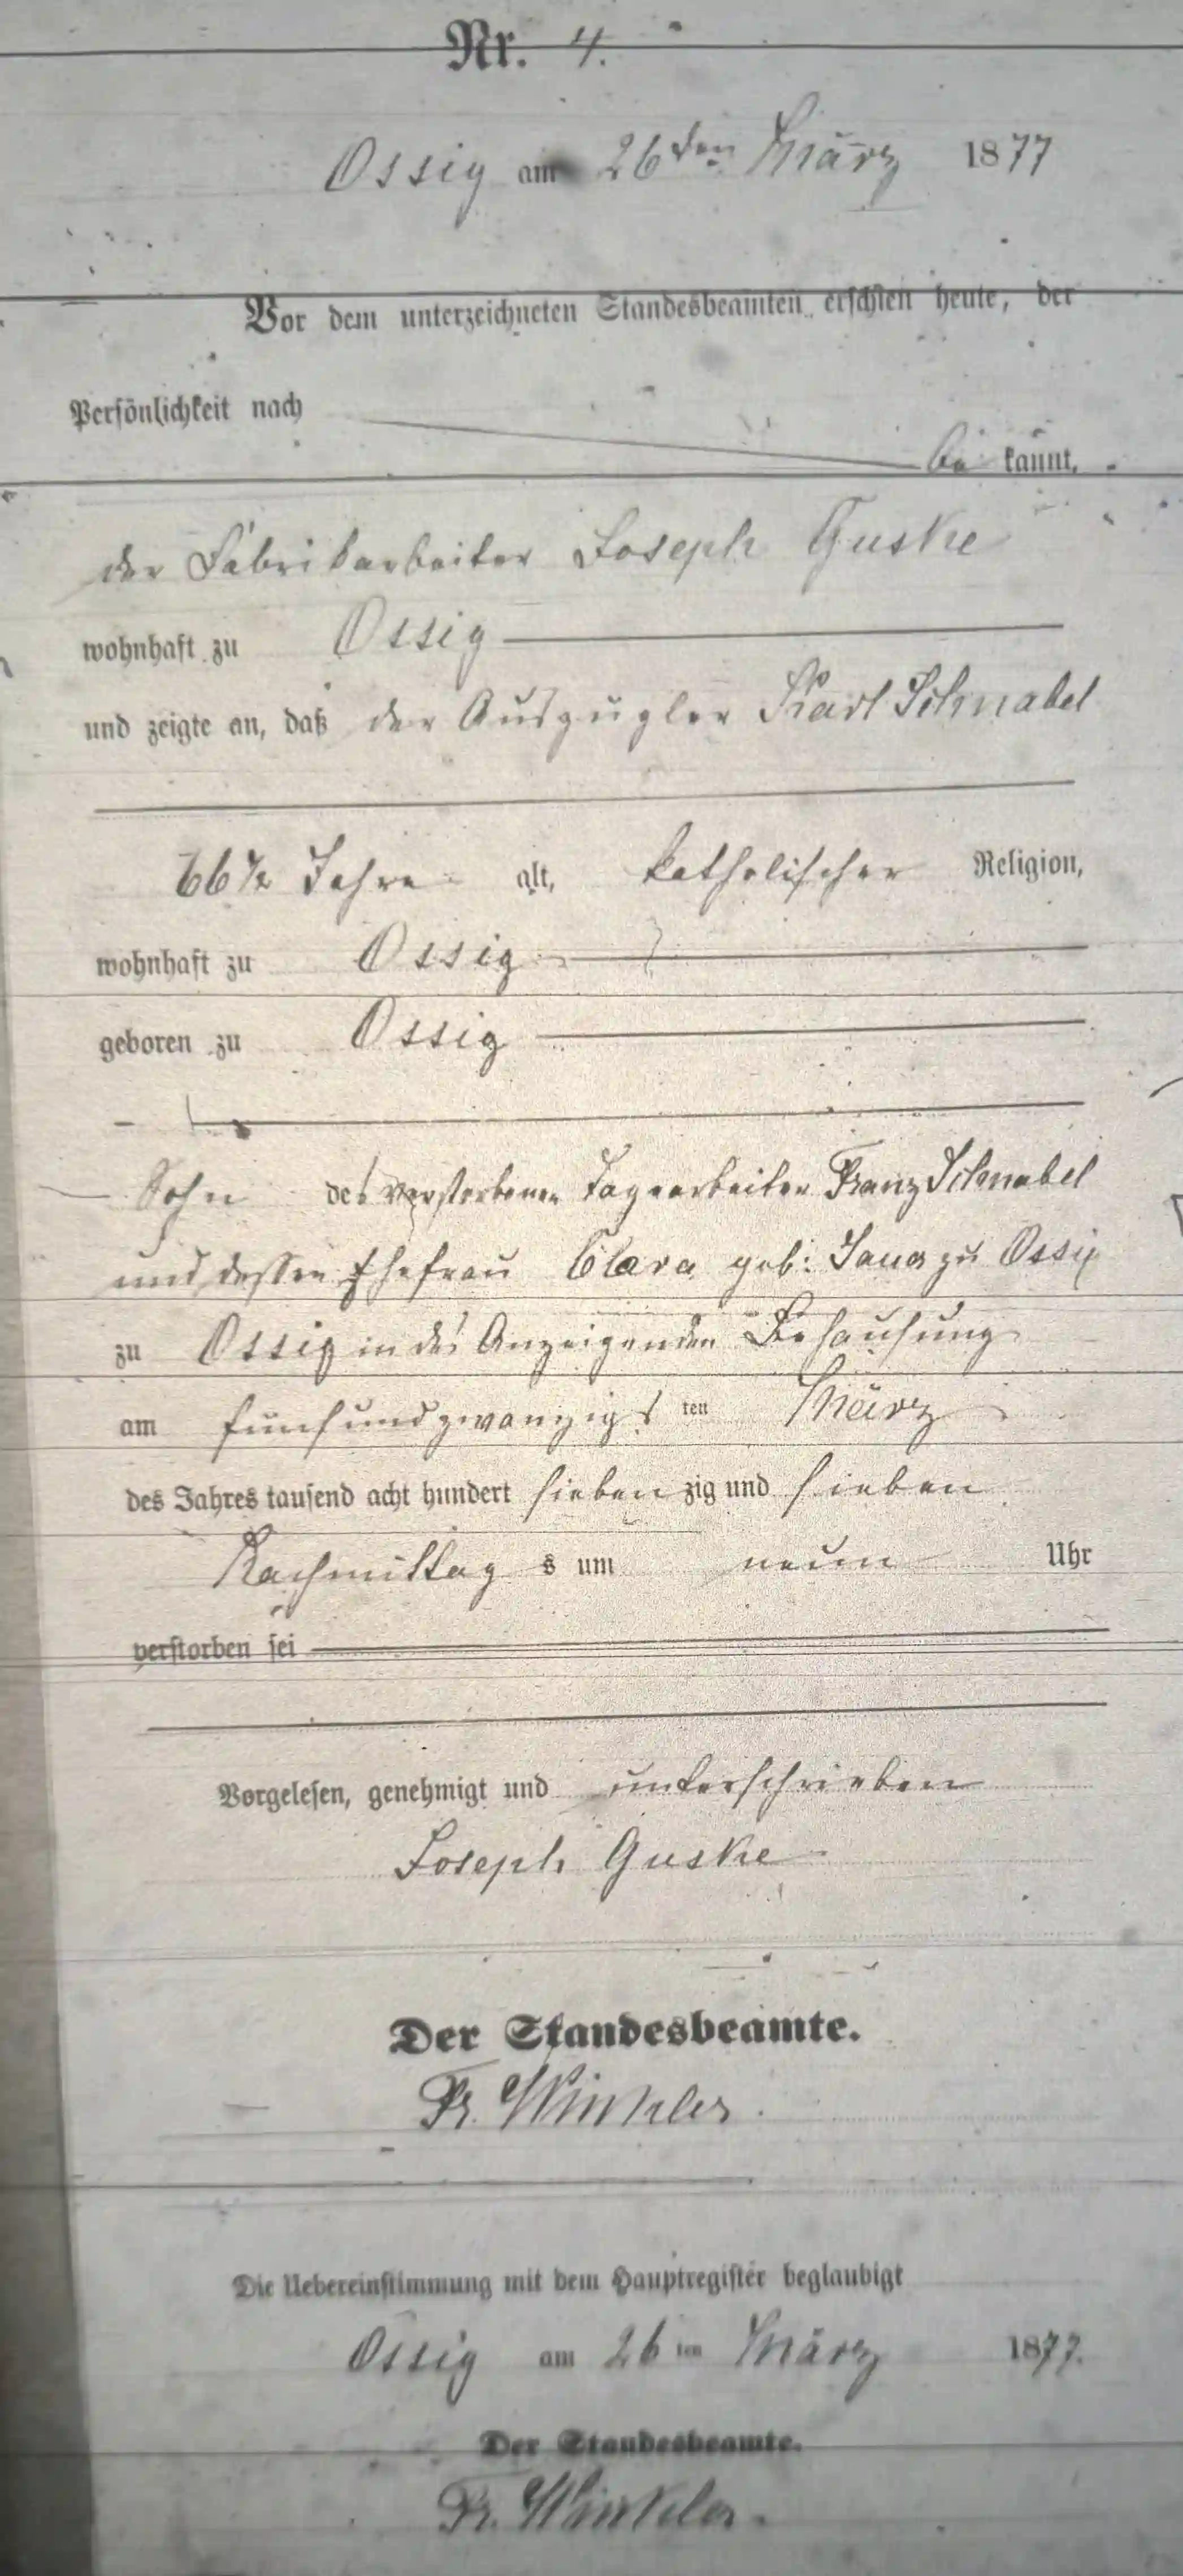 Nr. 4.
Ossig am 26ten März 1877
Vor dem unterzeichneten Standesbeamten erschien heute, der
Persönlichkeit nach
be kannt,
der Fabrikarbeiter Joseph Guske
wohnhaft zu Ossig
und zeigte an, daß der Auszügler Karl Schnabel
66½ Jahre alt, katholischer Religion,
wohnhaft zu Ossig
geboren zu Ossig
Sohn des verstorbenen Tagearbeiter Franz Schnabel
und dessen Ehefrau Clara geb: zu Ossig
zu Ossig in des Anzeigenden Behausung
am fünfundzwanzigs ten März
des Jahres tausend acht hundert sieben zig und sieben
Nachmittag s um neun Uhr
verstorben sei
Vorgelesen, genehmigt und unterschrieben
Joseph Guske
Der Standesbeamte.
Fr. Winkler.
Die Uebereinstimmung mit dem Hauptregister beglaubigt
Ossig am 26 ten März 1877.
Der Standesbeamte.
Fr. Winkler.